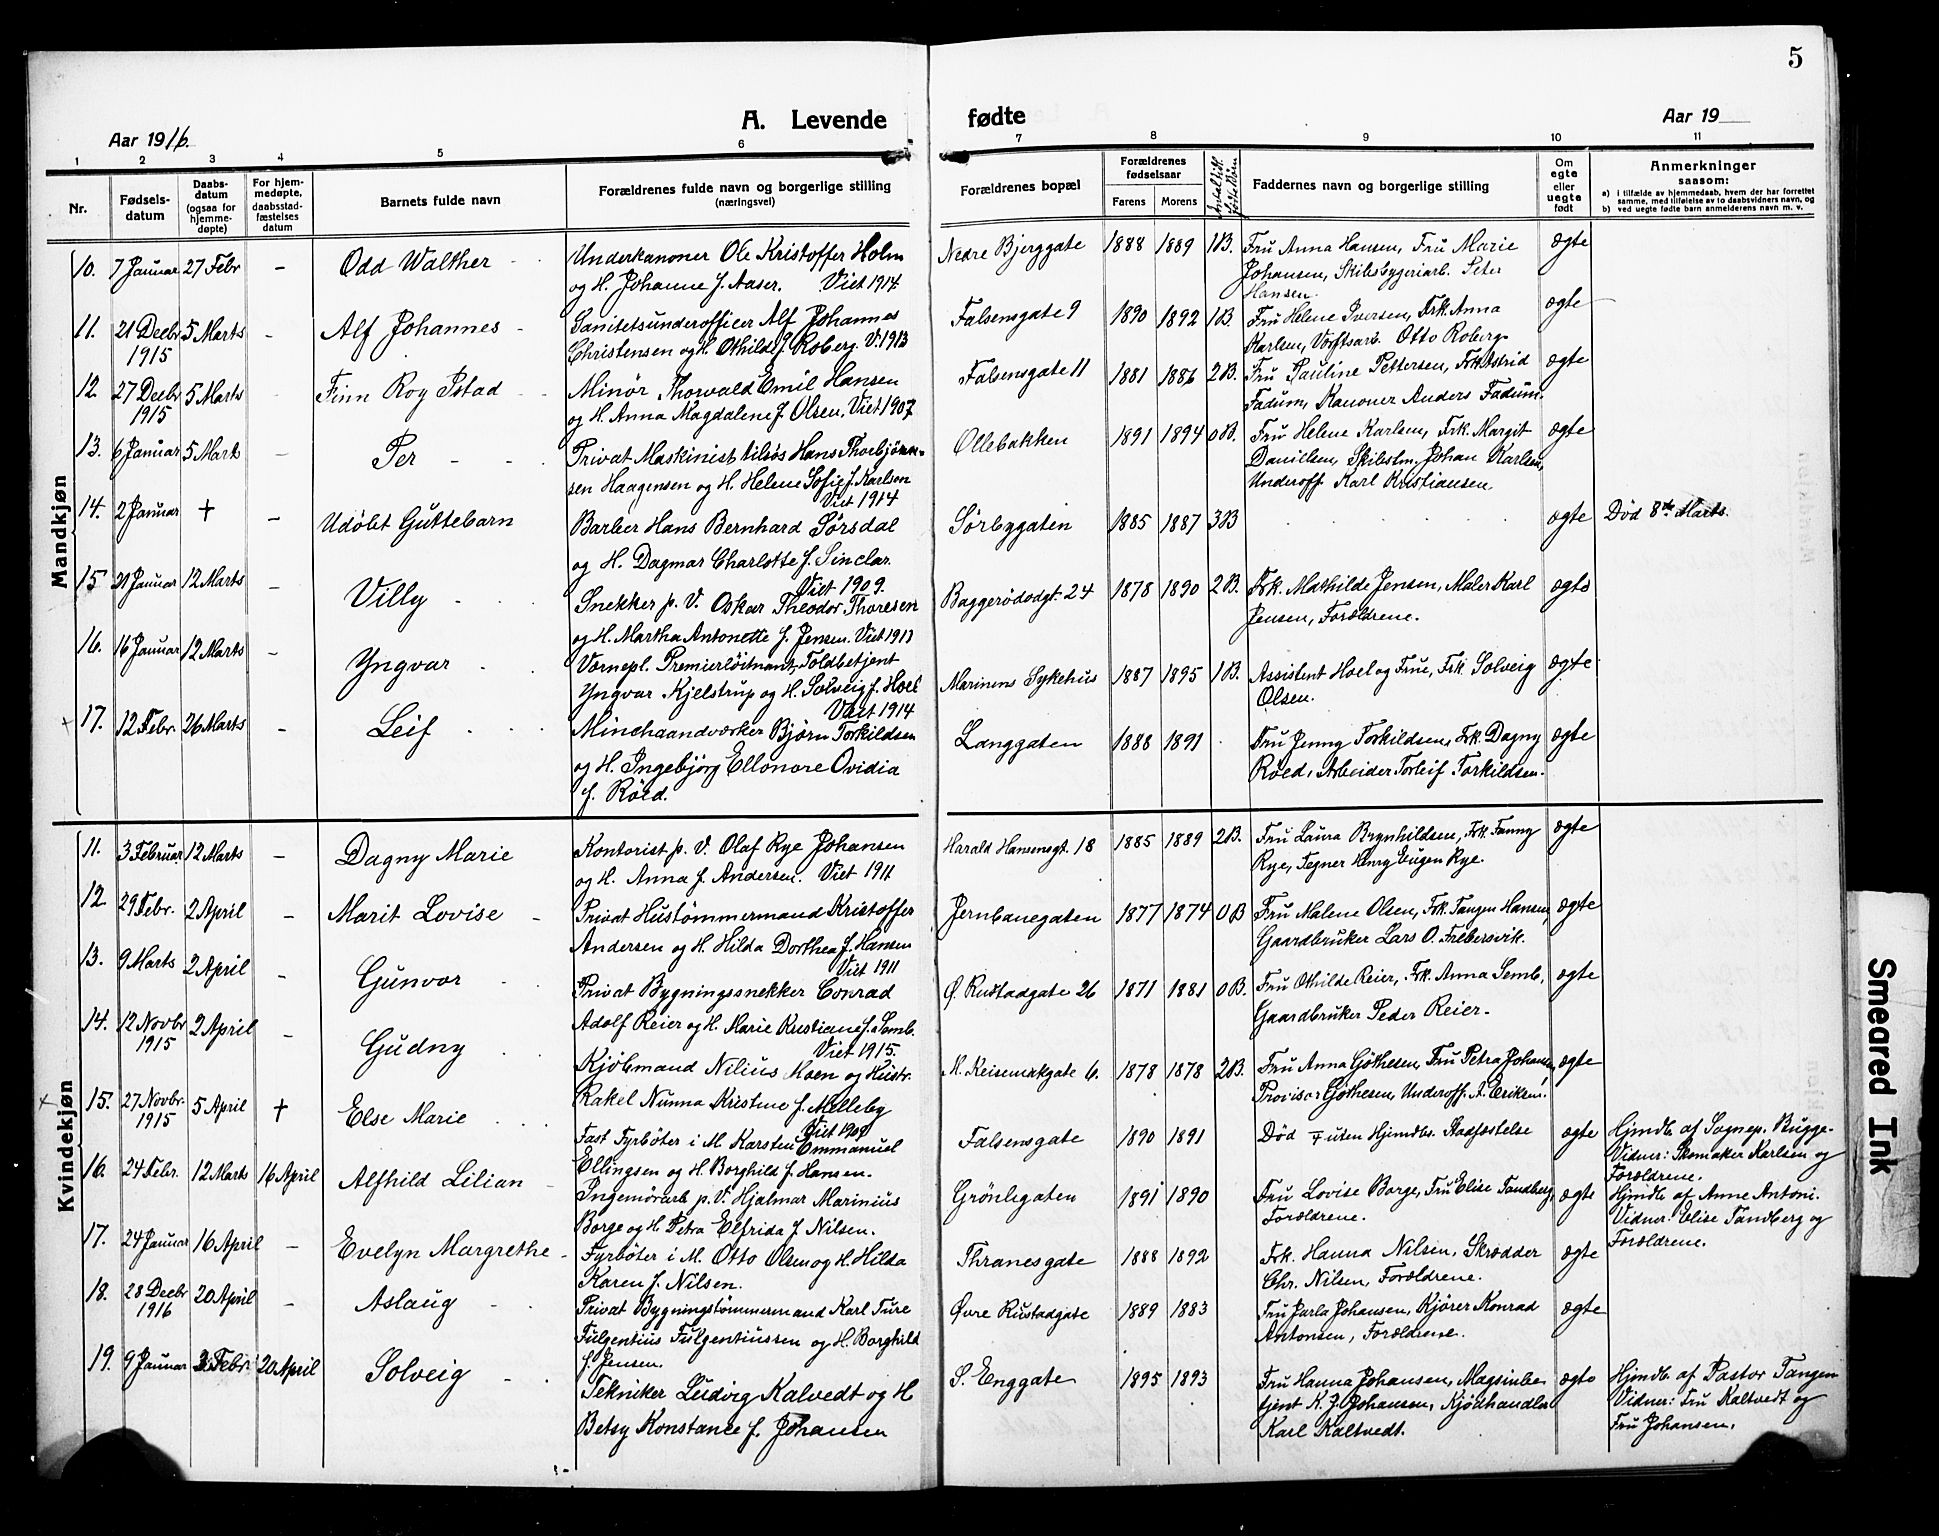 5
A. Levende fødte
Aar 1916.
Aar 19
1 2 3 4 5 6 7 8 9 10 11
Nr.
Fødsels-
datum
Daabs-
datum
(ogsaa for
hjemme-
døpte)
For hjem-
medøpte,
daabsstad-
fæstelses
datum
Barnets fulde navn
Forældrenes fulde navn og borgerlige stilling
(næringsvei)
Forældrenes bopæl
Forældrenes
fødselsaar
Farens Morens
Faddernes navn og borgerlige stilling
Om
egte
eller
uegte
født
Anmerkninger
saasom:
a) i tilfælde av hjemmedaab, hvem der har forrettet
samme, med tilføielse av to daabsvidners navn, og
b) ved uegte fødte barn anmelderens navn m. v.
Mandkjøn
10. 7 Januar 27 Febr – Odd Walther
Underkanoner Ole Kristoffer Holm
og H. Johanne f. Aaser. Viet 1914
Nedre Bjerggate 1888 1889 1B.
Fru Anna Hansen, Fru Marie
Johansen, Skibsbygeriarb. Peter
Hansen.
ægte
11. 21 Decbr
1915
5 Marts – Alf Johannes
Sanitetsunderofficer Alf Johannes
Christensen og H. Othilde f. Roberg. V. 1913
Falsensgate 9 1890 1892 1B.
Fru Helene Iversen, Frk. Anna
Karlsen, Værftsarb. Otto Roberg.
ægte
12. 27 Decbr
1915
5 Marts Finn Roy Istad
Minör Thorvald Emil Hansen
og H. Anna Magdalene f. Olsen, Viet 1907
Falsensgate 11 1881 1886 2B.
Fru Pauline Pettersen, Frk Astrid
Fadum, Kanoner Anders Fadum.
ægte
13. 6 Januar 5 Mart – Per
Privat Maskinist tilsøs Hans Thorbjørn-
sen Haagensen og H. Helene Sofie f. Karlsen
Viet 1914
Ollebakken 1891 1894 0B.
Fru Helene Karlsen, Frk. Margit
Danielsen, Skibstm. Johan Karlsen,
Underoff. Karl Kristiansen.
ægte
14. 2 Januar † – Udøbt Guttebarn
Barber Hans Bernhard Sørsdal
og H. Dagmar Charlotte f. Sinclar.
Viet 1909.
Sørbygaten 1885 1887 3B
ægte
Död 8de Marts.
15. 21 Januar 12 Marts – Villy
Snekker p. V. Oskar Theodor Thoresen
og H. Martha Antonette f. Jensen. Viet 1913
Baggerödsgt. 24 1878 1890 2B.
Frk. Mathilde Jensen, Maler Karl
Jensen, Forældrene.
ægte
16. 16 Januar 12 Marts – Yngvar
Vernepl. Premierløitnant, Toldbetjent
Yngvar Kjelstrup og H. Solveig f. Hoel
Viet 1914
Marinens Sykehus 1887 1895 1B.
Assistent Hoel og Frue, Frk. Solveig
Olsen.
ægte
17. 12 Febr. 26 Marts – Leif
Minehaandværker Bjørn Torkildsen
og H. Ingebjørg Ellonore Ovidia
f. Röed.
Langgaten 1888 1891
Fru Jenny Torkildsen, Frk. Dagny
Røed, Arbeider Torleif Torkildsen.
ægte
Kvindekjøn
11. 3 Februar 12 Marts – Dagny Marie
Kontorist p. V. Olaf Rye Johansen
og H. Anna f. Andersen. Viet 1911
Harald Hansensgt. 18 1885 1889 2B.
Fru Laura Brynhildsen, Frk. Fanny
Rye, Tegner Henry Eugen Rye.
ægte
12. 29 Febr. 2 April – Marit Lovise
Privat Hustømmermand Kristoffer
Andersen og H. Hilda Dorthea f. Hansen
Viet 1911
Jernbanegaten 1877 1874 0B
Fru Malene Olsen, Frk. Tangen Hansen,
Gaardbruker Lars O. Frebersvik.
ægte
13. 9 Marts 2 April – Gunvor
Privat Bygningssnekker Conrad
Adolf Reier og H. Marie Kristiane f. Semb.
Viet 1915.
Ø. Rustadgate 26 1871 1881 0B.
Fru Othilde Reier, Frk. Anna Semb,
Gaardbruker Peder Reier.
ægte
14. 12 Novbr
1915
2 April – Gudny
Kjøbmand Nilius Moen og Hustr.
Rakel Nunna Kristine f. Melleby
Viet 1909
M. Reisemarkgate 6. 1878 1878 2B.
Fru Anna Gøthesen, Fru Petra Johansen,
Provisor Gøthesen, Underoff. A. Eriksen.
ægte
15. 27 Novbr.
1915
5 April † Else Marie
Fast Fyrbøter i M. Karsten Emmanuel
Ellingsen og H. Borghild f. Hansen.
Falsensgate 1890 1891
Død uten Hjemdbs. Stadfæstelse
ægte
Hjmdb. af Sognep. Bugge.
Vidner: Skomaker Karlsen og
Forældrene.
16. 24 Febr. 12 Marts 16 April Alfhild Lilian
Ingeniørarb p. V. Hjalmar Marinius
Borge og H. Petra Elfrida f. Nilsen.
Grønligaten 1891 1890
Fru Lovise Borge, Fru Elise Tandberg,
Forældrene.
ægte
Hjmdb. af Anne Antoni.
Vidner: Elise Tandberg og
Forældrene.
17. 24 Januar 16 April – Evelyn Margrethe
Fyrbøter i M. Otto Olsen og H. Hilda
Karen f. Nilsen.
Thranesgate 1888 1892
Frk. Hanna Nilsen, Skrædder
Chr. Nilsen, Forældrene.
ægte
18. 28 Decbr
1916
20 April – Aslaug
Privat Bygningstømmermand Karl Ture
Fulgentius Fulgentiussen og H. Borghild
f. Jensen.
Øvre Rustadgate 1889 1883
Fru Jarla Johansen, Kjører Konrad
Antonsen, Forældrene.
ægte
19. 9 Januar 3 Febr. 20 April Solveig
Tekniker Ludvig Kaltvedt og H
Betsy Konstance f. Johansen
S. Enggate 1895 1893
Fru Hanna Johansen, Magsinbe
tjent K. J. Johansen, Kjødhandler
Karl Kaltvedt.
ægte
Hjmdb. af Pastor Tangen
Vidner: Fru Kaltvedt og
Fru Johansen.
Smeared Ink